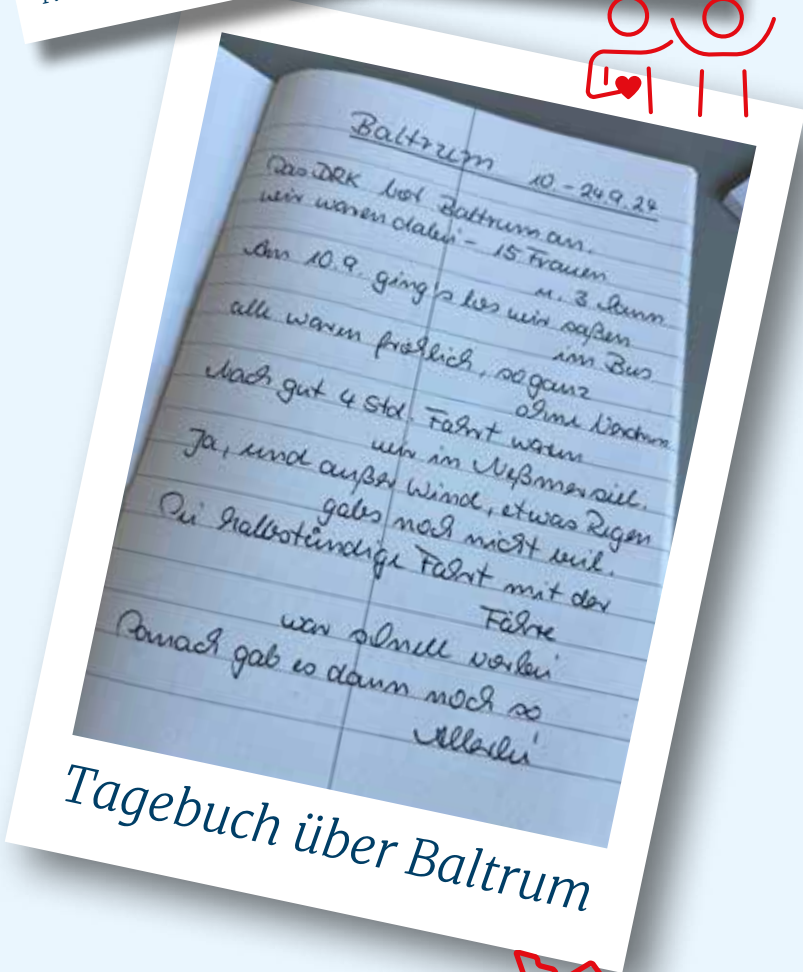 Baltrum 10.-24.9.24
Das DRK bot Baltrum an.
wir waren dabei - 15 Frauen
u. 3 Mann
Am 10.9. ging's los wir saßen
im Bus
alle waren fröhlich, so ganz
ohne
Nach gut 4 Std. Fahrt waren
wir in Neßmersiel.
Ja, und außer Wind, etwas Regen
gabs noch nicht viel.
Die halbstündige Fahrt mit der
Fähre
war schnell vorbei
Danach gab es dann noch so
Allerlei
Tagebuch über Baltrum